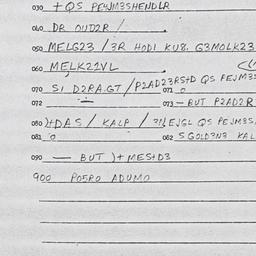 030 + QS PEWJM3SHENDLR
040 DR OUD2R /
050 MELG23 / 3R HODI KU8. G3MOLK23
060 MELK21VL
070 SI D2RA.GT / P2AD23RS+D QS PEJM3S
071
072 073 — BUT P2AD2R
080 )+DAS / KALA / EJGL QS PEJM3S,
081 082 SGOLD3N3 KAL
090 — BUT )+MES+D3
900 PO5RO ADUMO